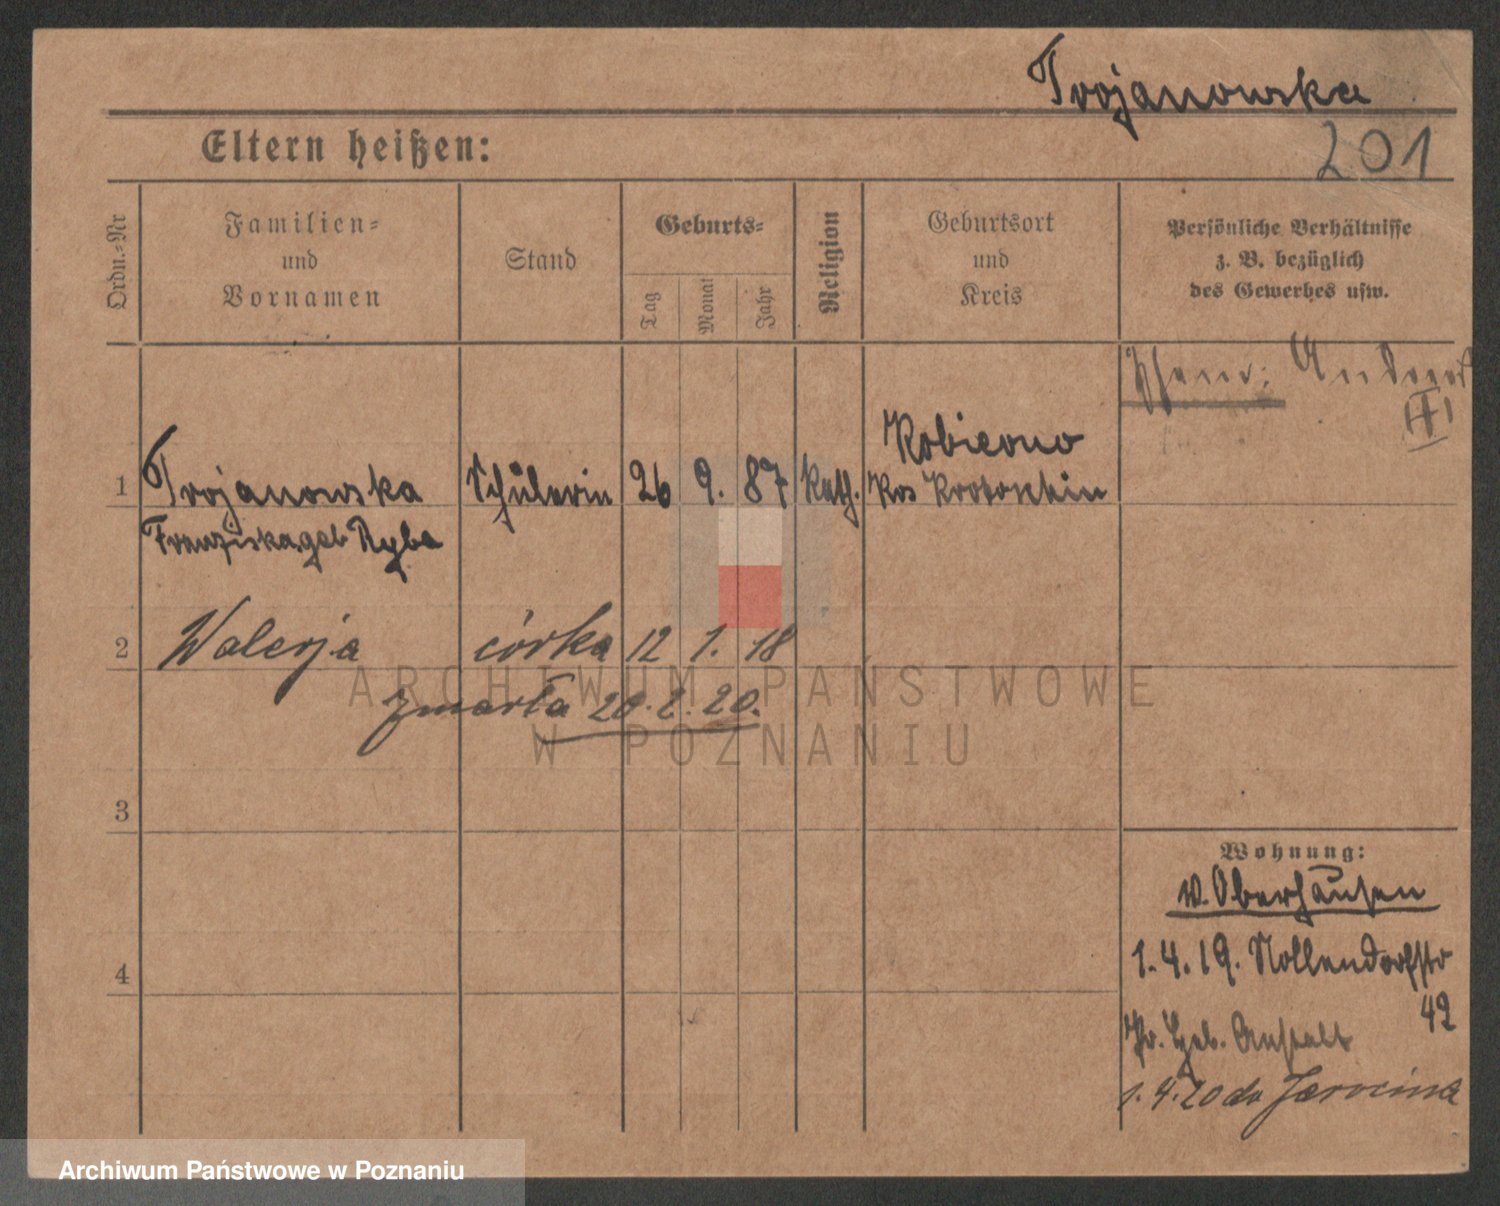 Trojanowska
201
Eltern heißen:
Ordn.-Nr
Familien-
und
Vornamen
Stand
Geburts-
Tag
Monat
Jahr
Religion
Geburtsort
und
Kreis
Persönliche Verhältnisse
z. B. bezüglich
des Gewerbes usw.
Ehem: Andreas
III
1 Trojanowska Schülerin 26 9. 87 Kath. Kobierno
Krs Krotoschin
Franziska geb Ryba
2 Walerja córka 12 1. 18
zmarła 20.2.20.
ARCHIWUM PAŃSTWOWE
W POZNANIU
3
4
Wohnung:
v. Oberhausen
1.4.19. Nollendorfstr
42
Pr. Heb. Anstalt
1.4.20 do Jarocina
Archiwum Państwowe w Poznaniu